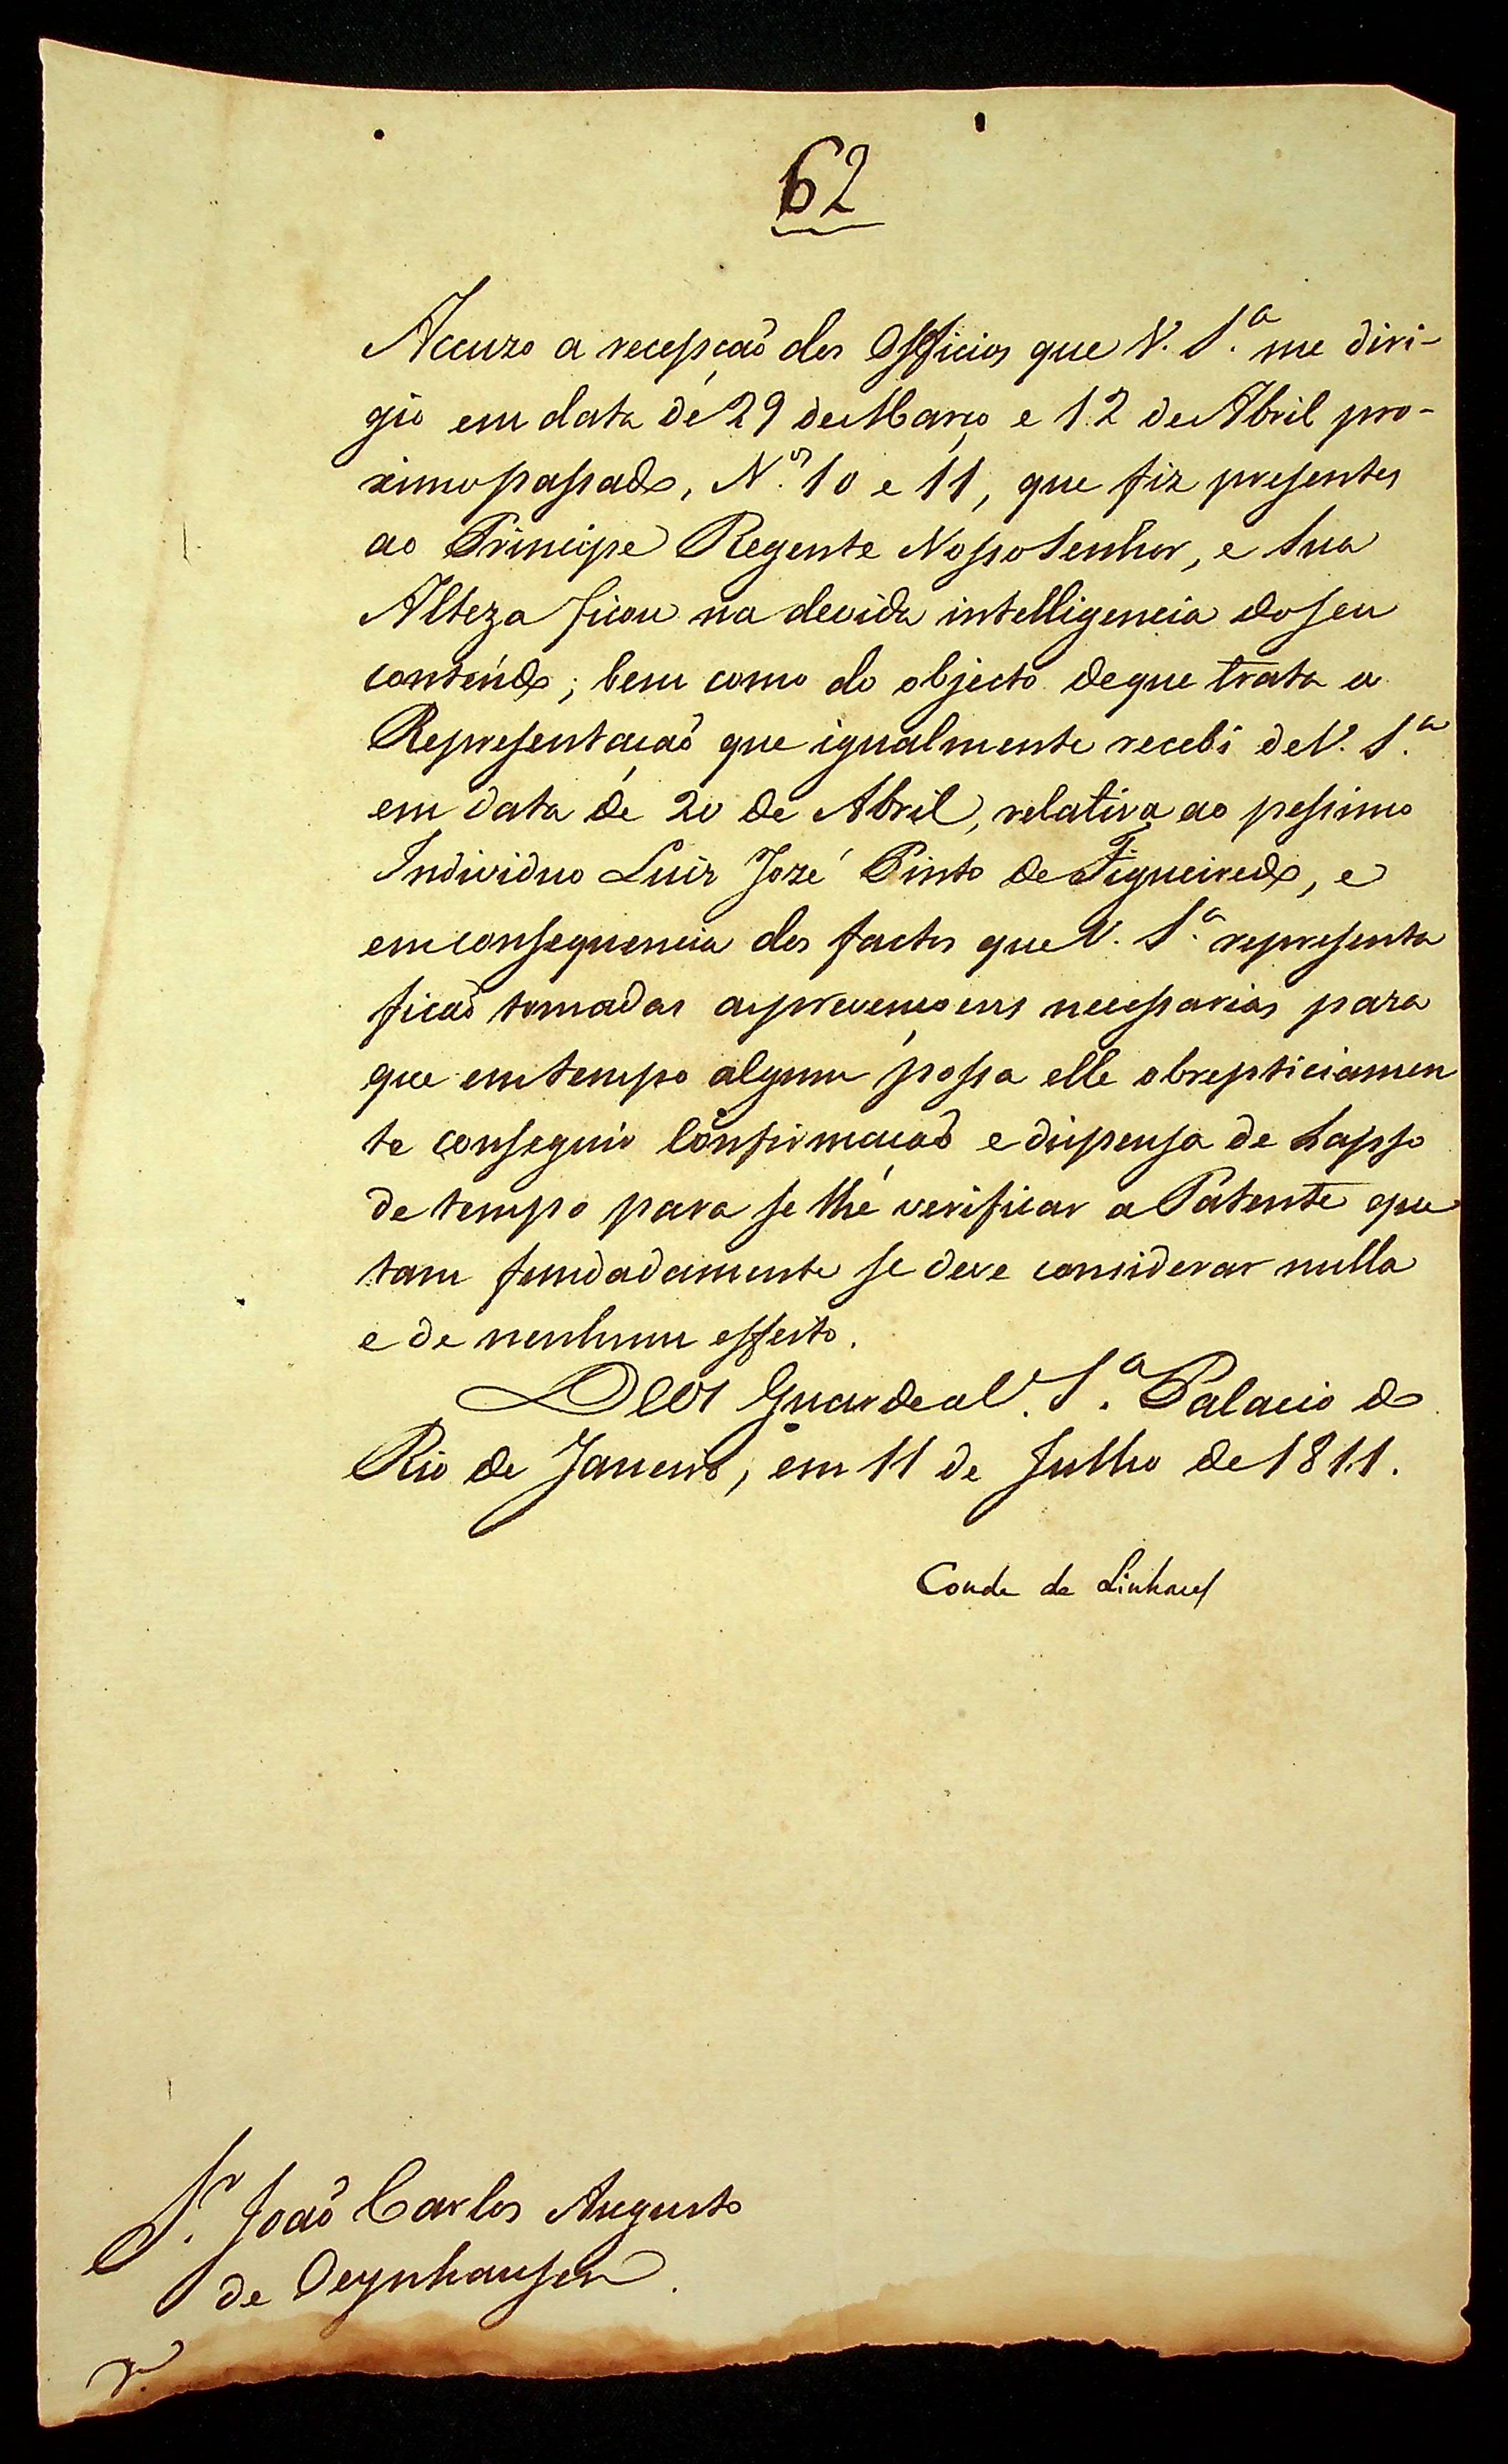 62
Accuzo a recepção dos Officios que V. S.ª me diri-
gio em data de 29 de Março e 12 de Abril pro-
ximo passado, N.os 10 e 11, que fiz presentes
ao Principe Regente Nosso Senhor, e Sua
Alteza ficou na devida intelligencia do seu
contéudo; bem como do objecto de que trata a
Representação que igualmente recebi de V. S.ª
em data de 20 de Abril, relativa ao pessimo
Individuo Luiz Jozé Pinto de Figueiredo, e
em consequencia dos factos que V. S.ª representa
ficão tomadas as prevençoens necessarias para
que em tempo algum possa elle obrepticiamen
te conseguir Confirmação e dispensa de Lapso
de tempo para se lhe verificar a Patente que
tam fundadamente se deve considerar nulla
e de nenhum effeito.
Deos Guarde a V. S.ª Palacio do
Rio de Janeiro, em 11 de Julho de 1811.
Conde de Linhares
S.r João Carlos Augusto
de Oeynhausen.